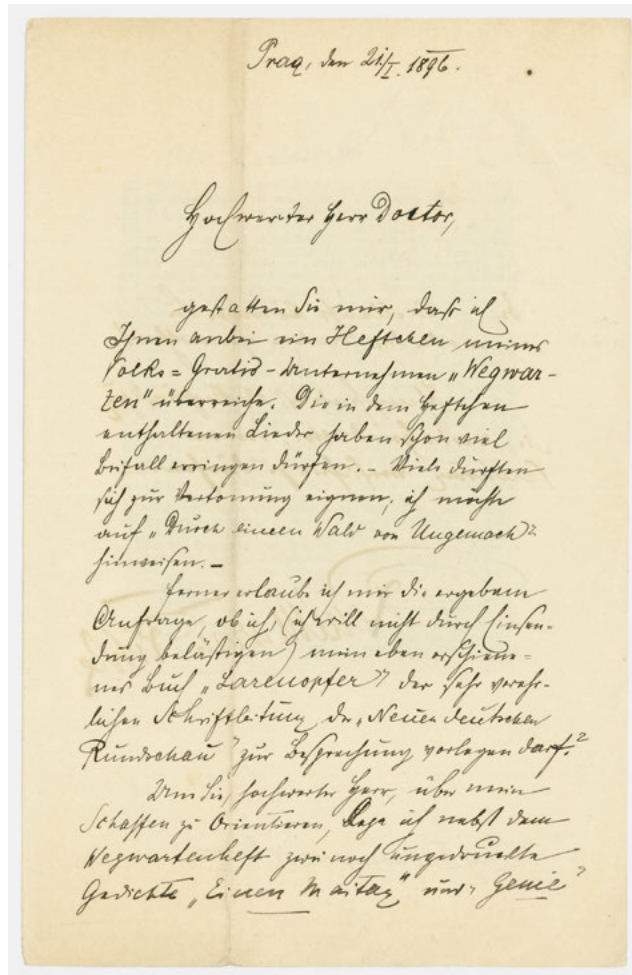 Prag, den 21/I. 1896.
Hochwerter Herr Doctor,
gestatten Sie mir, dass ich
Ihnen anbei ein Heftchen meines
Volks=Gratis-Unternehmens „Wegwar-
ten" überreiche. Die in dem Heftchen
enthaltenen Lieder haben schon viel
Beifall erringen dürfen. – Viele dürften
sich zur Vertonung eignen; ich möchte
auf „Durch einen Wald von Ungemach"
hinweisen. –
Ferner erlaube ich mir die ergebene
Anfrage, ob ich, (ich will nicht durch Einsen-
dung belästigen) mein eben erschiene-
nes Buch „Larenopfer" der sehr verehr-
lichen Schriftleitung der „Neuen deutschen
Rundschau" zur Besprechung vorlegen darf.?
Um Sie, hochwerter Herr, über mein
Schaffen zu orientieren, lege ich nebst dem
Wegwartenheft zwei noch ungedruckte
Gedichte „Einen Maitag" und „Genie"